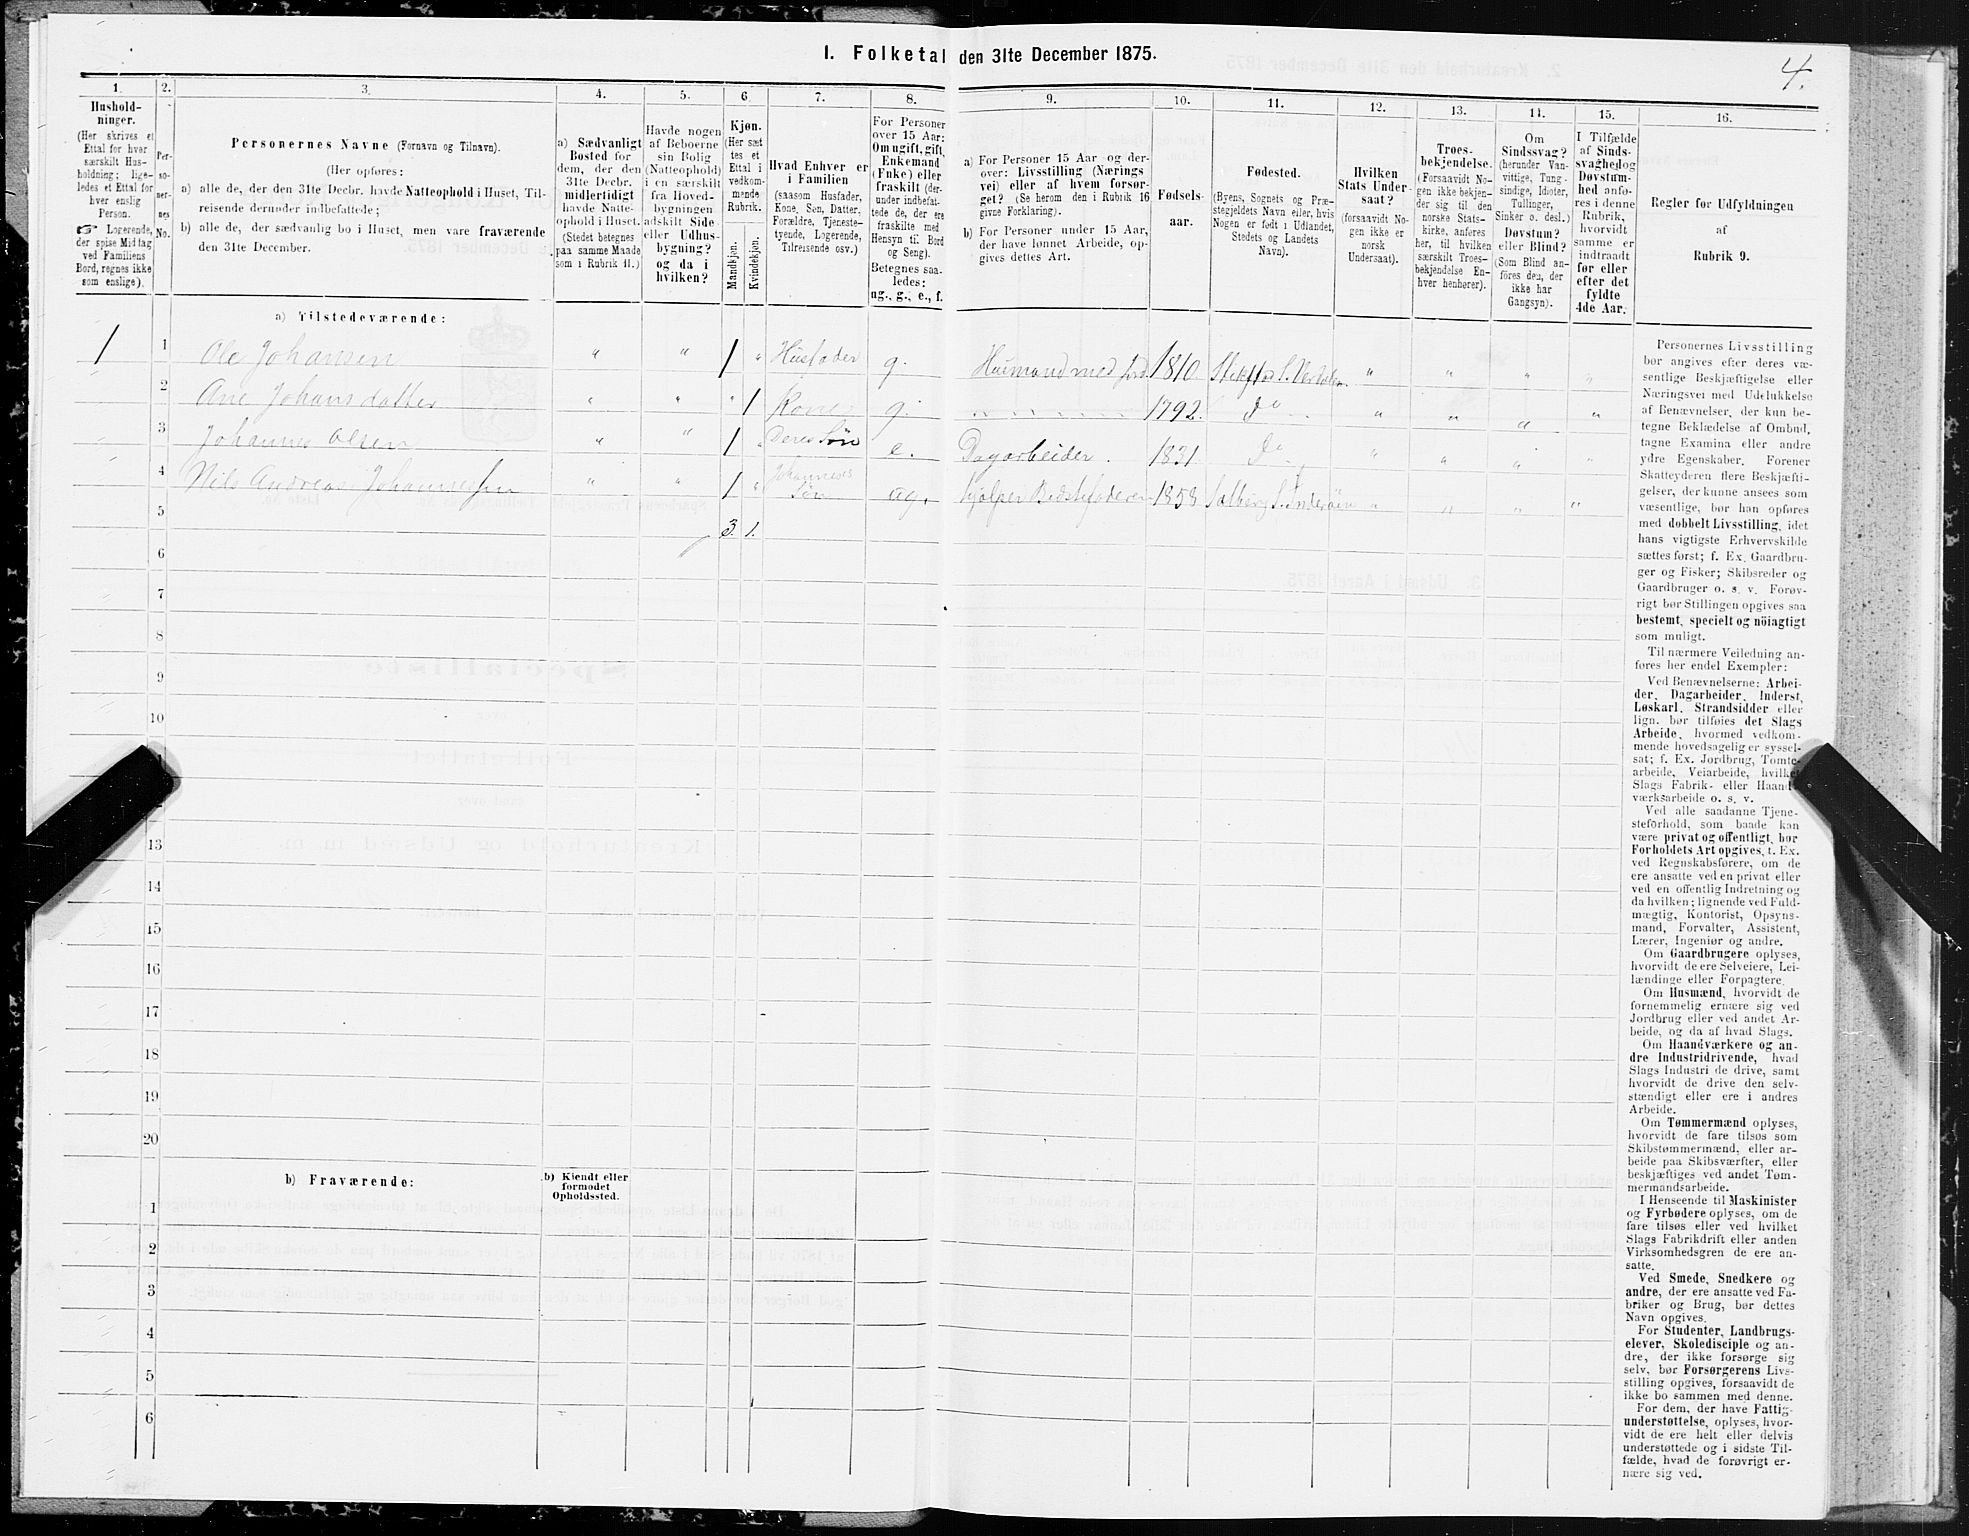 I. Folketal den 31te December 1875.
4.
1. 2. 3. 4. 5. 6. 7. 8. 9. 10. 11. 12. 13. 14. 15. 16.
Hushold-
ninger.
(Her skrives et
Ettal for hver
særskilt Hus-
holdning; lige-
ledes et Ettal for
hver enslig
Person.
☞ Logerende,
der spise Middag
ved Familiens
Bord, regnes ikke
som enslige).
Per-
so-
ner-
nes
No.
Personernes Navne (Fornavn og Tilnavn).
(Her opføres:
a) alle de, der den 31te Decbr. havde Natteophold i Huset, Til-
reisende derunder indbefattede;
b) alle de, der sædvanlig bo i Huset, men vare fraværende
den 31te December.
a) Sædvanligt
Bosted for
dem, der den
31te Decbr.
midlertidigt
havde Natte-
ophold i Huset.
(Stedet betegnes
paa samme Maade
som i Rubrik 11.)
Havde nogen
af Beboerne
sin Bolig
(Natteophold)
i en særskilt
fra Hoved-
bygningen
adskilt Side
eller Udhus-
bygning?
og da i
hvilken?
Kjøn.
(Her sæt
tes et
Ettal i
vedkom-
mende
Rubrik.
Mandkjøn.
Kvindekjøn.
Hvad Enhver er
i Familien
(saasom Husfader,
Kone, Søn, Datter,
Forældre, Tjeneste-
tyende, Logerende,
Tilreisende osv.)
For Personer
over 15 Aar:
Om ugift, gift,
Enkemand
(Enke) eller
fraskilt (der-
under indbefat-
tede de, der ere
fraskilte med
Hensyn til Bord
og Seng).
Betegnes saa-
ledes:
ug., g., e., f.
a) For Personer 15 Aar og der-
over: Livsstilling (Nærings
vei) eller af hvem forsør-
get? (Se herom den i Rubrik 16
givne Forklaring).
b) For Personer under 15 Aar,
der have lønnet Arbeide, op-
gives dettes Art.
Fødsels-
aar.
Fødested.
(Byens, Sognets og Præ-
stegjeldets Navn eller, hvis
Nogen er født i Udlandet,
Stedets og Landets
Navn).
Hvilken
Stats Under-
saat?
(forsaavidt No-
gen ikke er
norsk
Undersaat).
Troes-
bekjendelse.
(Forsaavidt No-
gen ikke bekjen-
der sig til den
norske Stats-
kirke, anføres
her, til hvilken
særskilt Troes-
bekjendelse En-
hver henhører).
Om
Sindssvag?
(herunder Van-
vittige, Tung-
sindige, Idioter,
Tullinger,
Sinker o. desl.)
Døvstum?
eller Blind?
(Som Blind an-
føres den, der
ikke har
Gangsyn).
I Tilfælde
af Sinds-
svaghed og
Døvstum-
hed anfø-
res i denne
Rubrik,
hvorvidt
samme er
indtraadt
før eller
efter det
fyldte
4de Aar.
Regler for Udfyldningen
af
Rubrik 9.
a) Tilstedeværende:
1 1 Ole Johansen " " 1 " Husfader g. Husmand med Jord 1810 S. Verdalen " " " "
2 Ane Johansdatter " " " 1 Kone g. " " " " 1792. Do " " " "
3 Johannes Olsen " " 1 " Deres Søn e. Dagarbeider. 1831 Do " " " "
4 Nils Andreas Johannessen " " 1 " Johanneses Søn ug. hjælper Bedstefaderen 1858 Salberg S. Inderøen " " " "
5 3. 1.
6
7
8
9
10
13
14
15
16
17
18
19
20
b) Fraværende:
b) Kjendt eller
formodet
Opholdssted.
1
2
3
4
5
6
Personernes Livsstilling
bør angives efter deres væ-
sentlige Beskjæftigelse eller
Næringsvei med Udelukkelse
af Benævnelser, der kun be-
tegne Beklædelse af Ombud,
tagne Examina eller andre
ydre Egenskaber. Forener
Skatteyderen flere Beskjæfti-
gelser, der kunne ansees som
væsentlige, bør han opføres
med dobbelt Livsstilling, idet
hans vigtigste Erhvervskilde
sættes først; f. Ex. Gaardbru-
ger og Fisker; Skibsreder og
Gaardbruger o. s. v. Forøv-
rigt bør Stillingen opgives saa
bestemt, specielt og nöiagtigt
som muligt.
Til nærmere Veiledning an-
føres her endel Exempler:
Ved Benævnelserne: Arbei-
der, Dagarbeider, Inderst,
Løskarl, Strandsidder eller
lign. bør tilføies det Slags
Arbeide, hvormed vedkom-
mende hovedsagelig er syssel-
sat; f. Ex. Jordbrug, Tomte-
arbeide, Veiarbeide, hvilket
Slags Fabrik- eller Haand-
værksarbeide o. s. v.
Ved alle saadanne Tjene-
steforhold, som baade kan
være privat og offentligt, bør
Forholdets Art opgives, t. Ex.
ved Regnskabsførere, om de
ere ansatte ved en privat eller
ved en offentlig Indretning og
da hvilken; lignende ved Fuld-
mægtig, Kontorist, Opsyns-
mand, Forvalter, Assistent,
Lærer, Ingeniør og andre.
Om Gaardbrugere oplyses,
hvorvidt de ere Selveiere, Lei-
lændinge eller Forpagtere.
Om Husmænd, hvorvidt de
fornemmelig ernære sig ved
Jordbrug eller ved andet Ar-
beide, og da af hvad Slags.
Om Haandværkere og an-
dre Industridrivende, hvad
Slags Industri de drive, samt
hvorvidt de drive den selv-
stændigt eller ere i andres
Arbeide.
Om Tømmermænd oplyses,
hvorvidt de fare tilsøs som
Skibstømmermænd, eller ar-
beide paa Skibsværfter, eller
beskjæftiges ved andet Tøm-
mermandsarbeide.
I Henseende til Maskinister
og Fyrbødere oplyses, om de
fare tilsøs eller ved hvilket
Slags Fabrikdrift eller anden
Virksomhedsgren de ere an-
satte.
Ved Smede, Snedkere og
andre, der ere ansatte ved Fa-
briker og Brug, bør dettes
Navn opgives.
For Studenter, Landbrugs-
elever, Skoledisciple og an-
dre, der ikke forsørge sig
selv, bør Forsørgerens Livs-
stilling opgives, forsaavidt de
ikke bo sammen med denne.
For dem, der have Fattig-
understøttelse, oplyses, hvor-
vidt de ere helt eller delvis
understøttede og i sidste Til-
fælde, hvad de forøvrigt er-
nære sig ved.